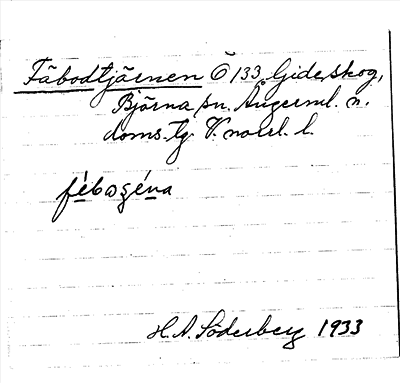 Fäbodtjärnen Ö 133 Gideåskog,
Björna sn. Ångerml. n.
doms. tg. V. norrl. l.
H. A. Söderberg 1933